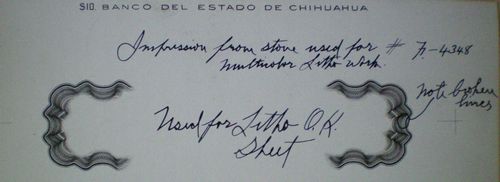 $10. BANCO DEL ESTADO DE CHIHUAHUA
Impression from stone used for # F-4348
multicolor Litho work.
note broken
lines
Used for Litho O.K.
Sheet